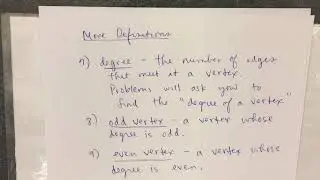 More Definitions
7) degree - the number of edges
that meet at a vertex.
Problems will ask you to
find the "degree of a vertex"
8) odd vertex - a vertex whose
degree is odd.
9) even vertex - a vertex whose
degree is even.